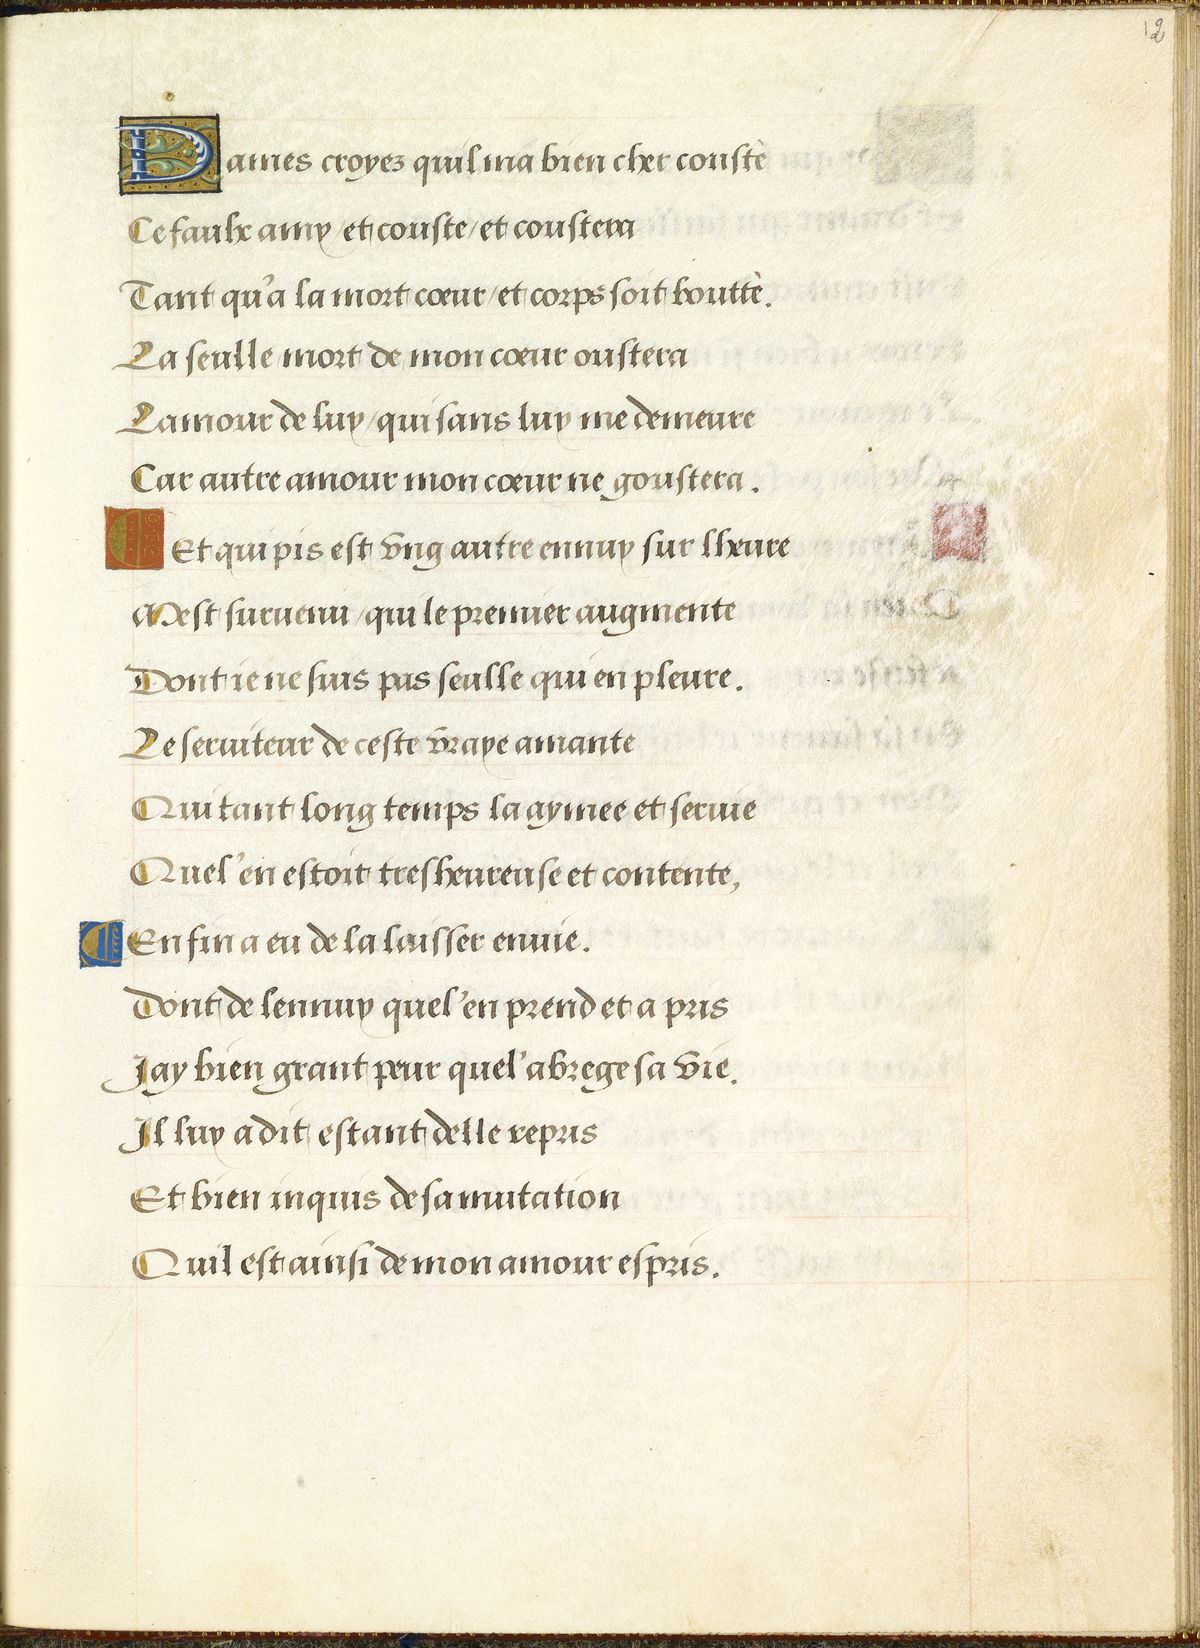 12
Dames croyez quil ma bien cher coustè
Ce faulx amy / et couste / et coustera
Tant qu'a la mort cœur / et corps soit bouttè.
La seulle mort de mon cœur oustera
Lamour de luy / qui sans luy me demeure
Car autre amour mon cœur ne goustera.
Et qui pis est vng autre ennuy sur lheure
Mest suruenu / qui le premier augmente
Dont ie ne suis pas seulle qui en pleure.
Le seruiteur de ceste vraye amante
Qui tant long temps la aymee et seruie
Quel'en estoit tresheureuse et contente,
En fin a eu de la laisser enuie.
Dont de lennuy quel'en prend et a pris
Jay bien grant peur quel'abrege sa vie.
Il luy a dit estant delle repris
Et bien inquis de sa mutation
Quil est ainsi de mon amour espris.